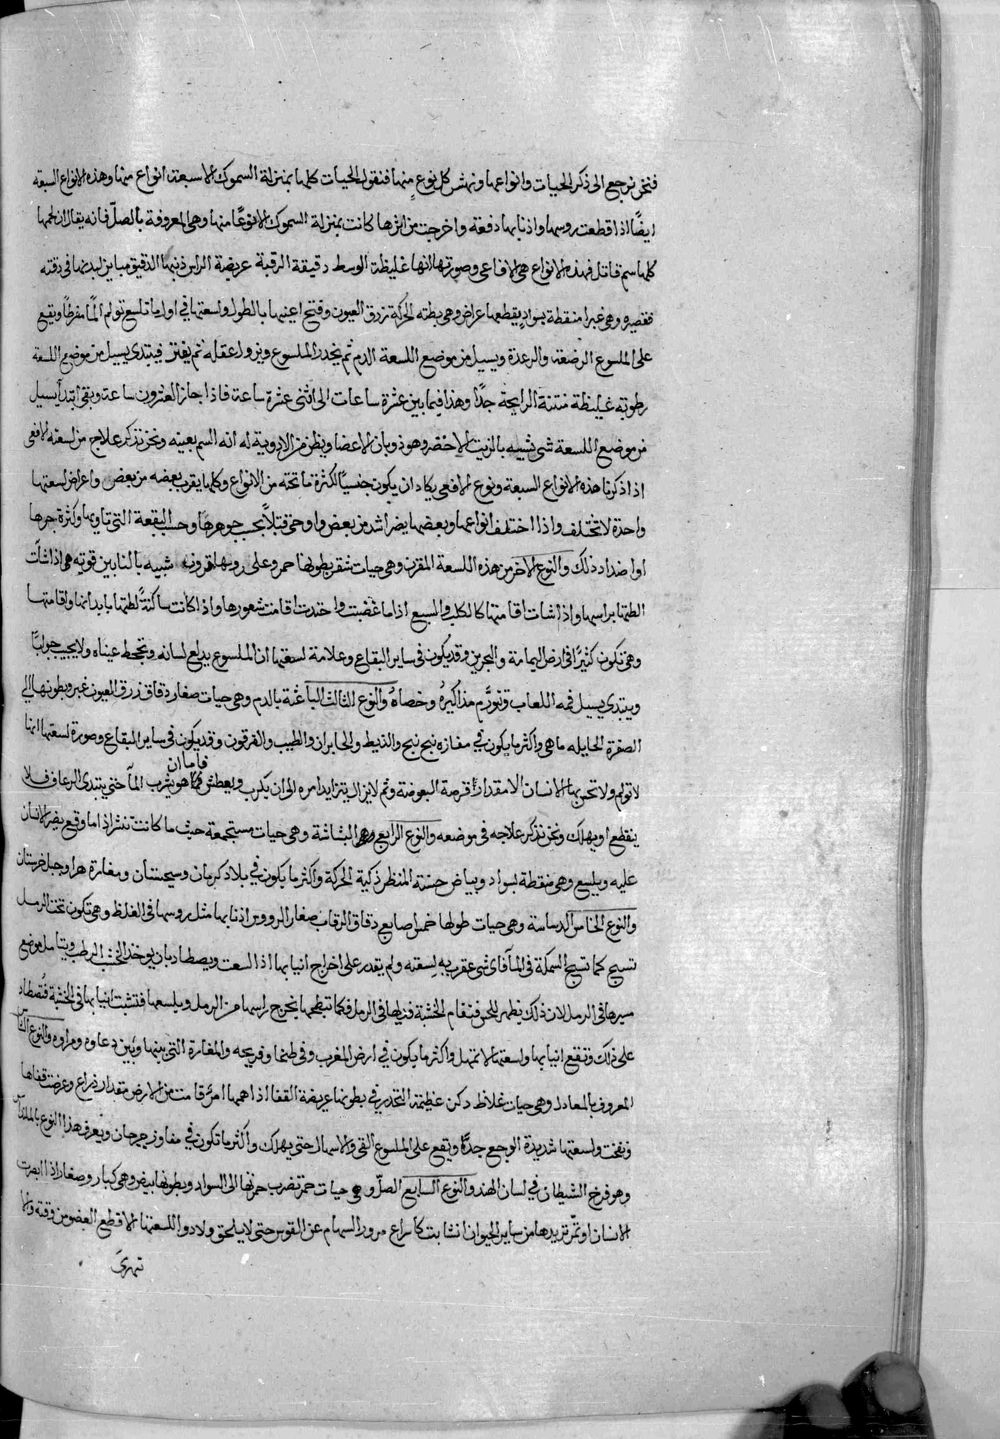 فنحن نرجع الى ذكر الحيات وانواعها ونهش كل نوع منها فنقول الحيات كلها بمنزلة السموك الا سبعة انواع منها وهذه الانواع السبعة
ايضًا اذا قطعت روسها واذنابها دفعة واخرجت من اثرها كانت بمنزلة السموك الا نوعًا منها وهى المعروفة بالصل فانه يقال ان لحمها
كلها سم قاتل فهذه الانواع هى الافاعى وصورتها انها غليظة الوسط دقيقة الرقبة عريضة الراس ذنبها الدقيق مباين لبدنها فى دقته
فقصيره وهى غبرا منقطة بسواد يقطعها عراض وهى بطئه الحركة تزرق العيون وفتح اعينها بالطول ولسعتها فى اول ما تلسع تولم الما مفرطًا ويقع
على الملسوع الرضفة والرعدة ويسيل من موضع اللسعة الدم ثم يخدر الملسوع ويزول عقله ثم يفتر فيبتدى يسيل من موضع اللسعة
رطوبة غليظة منتنة الرايحة جدًا وهذا فيما بين عشرة ساعات الى اثنى عشرة ساعة فاذا جاز العشرون ساعة وبقى ابتدأ يسيل
من موضع اللسعة شى شبيه بالزيت الاخضر وهو ذوبان الاعضا ويظن من لا دربة له انه السم بعينه ونحن نذكر علاج من لسعته الافعى
اذا ذكرنا هذه الانواع السبعة ونوع الافعى يكاد ان يكون جنسيًا لكثرة ما تحته من الانواع وكلها يقرب بعضه من بعض واعراض لسعتها
واحدة لا تختلف واذا اختلف انواعها وبعضها يضر اشد من بعض واوحى قتلًا بحسب جوهرها وحسب البقعة التى تاويها وكثرة حرها
او اضداد ذلك والنوع الاخر من هذه اللسعة المقرن وهى حيات شقر بطونها حمر وعلى روسها قرون شبيه بالنابين قويه هى اذا شات
الطتها براسها واذا شات اقامتها كالكلب والسبع اذا ما غضبت واحتدت اقامت شعورها واذا كانت ساكنة لطتها بابدانها ولقامتها
وهى تكون كثيرًا فى ارض اليمامة والبحرين وقد يكون فى ساير البقاع وعلامة لسعتها ان الملسوع يدلع لسانه وتجحظ عيناه ولا يجيب جوابًا
ويبتدى يسيل فمه اللعاب وتورم مذاكيرهُ وخصاهُ والنوع الثالث الباعثة بالدم وهى حيات صغار دقاق زرق العيون غبر وبطونها الى
الصفرة الحايله ما هى واكثر ما يكون فى مفازه نيح نيح والذيط والى ايران والطيب والفرقون وقد يكون فى ساير البقاع وصورة لسعتها انها
لا تولم ولا تحس بها الانسان الا مقدار قرصة البعوضة وثم لا يزال يتزايد امره الى ان يكرب ويعطش فاما ان هو يشرب المآ حتى يبتدى الرعاف فلا
ينقطع او يهلك ونحن نذكر علاجه فى موضعه والنوع الرابع وهو البشاشة وهى حيات مستجمعة حيث ما كانت تنثر اذا ما وقع بصر الانسان
عليه ويلسع وهى منقطة بسواد وبياض حسنة المنظر ذكية الحركة واكثر ما يكون فى بلاد كرمان وسيحستان ومغارة هرا وجبل غرستان
والنوع الخامس الدساسة وهى حيات طولها خمس اصابع دقاق الرقاب صغار الرووس اذنابها مثل روسها فى الغلظ وهى تكون تحت الرمل
تسبح كما تسبح السمكة فى المآ فاى شى عقرب به لسعته ولم يقدر على اخراج انيابها اذا السعت ويصطاد بان يوخذ الخشب الرطب ويتامل موضع
سيرها فى الرمل لان ذلك يظهر للحس فتقام الخشبة فى ريطها فى الرمل فكما تبطحها يخرج راسها من الرمل ويلسعها فتثبت انيابها فى الخشبة فتُصطاد
على ذلك وتنقع انيابها ولسعتها لا تمهل واكثر ما يكون فى ارض المغرب وفى طنجا وفريجه والمغازة التى بينها وبين دعاوه ومراوه والنوع الثا
المعروف بالمعادل وهى حيات غلاظ دكن عظيمة التخدير فى بطونها عريضة القفا اذا هممها امرؤ قامت من الارض مقدار ذراع وعرضت قفاها
ونفخت ولسعتها شديدة الوجع جدًا ويقع على الملسوع القى والاسهال حتى يهلك واكثر ما تكون فى مفاوز جرجان ويعرف هذا النوع بالملكا
وهو فرخ الشيطان فى لسان الهند والنوع السابع الصل وهى حيات حمر تضرب حمرتها الى السواد وبطونها بيض وهى كبار وصغار اذا ابصرت
الانسان او تمر تريدها من ساير الحيوان انشابت كاسراع مرور السهام عن القوس حتى لا يلحق ولا دوا للسعتها الا قطع العضو من وقته والا
تهرى